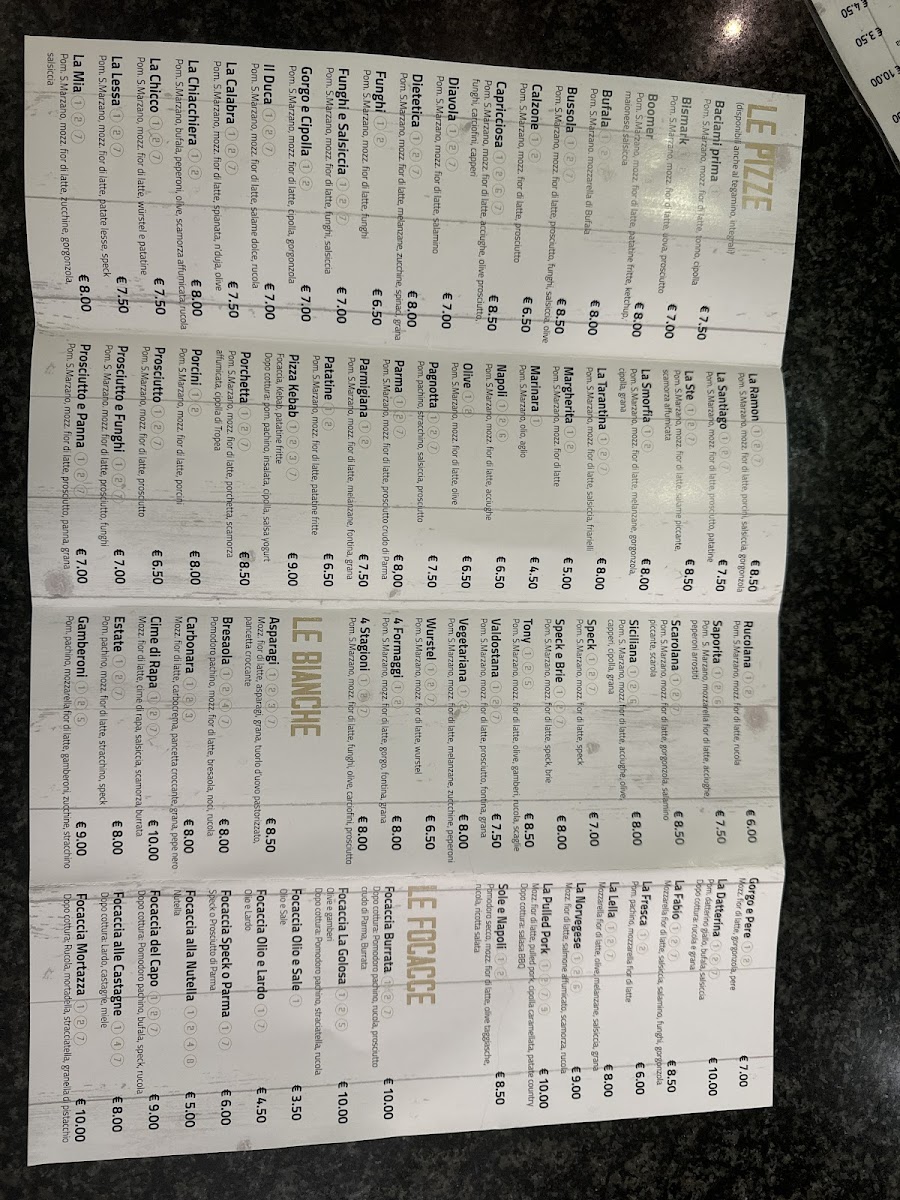 LE PIZZE
(disponibili anche al tegamino, integrali)
Baciami prima 1 € 7.50
Pom. S.Marzano, mozz. fior di latte, tonno, cipolla
Bismark € 7.00
Pom. S.Marzano, mozz. fior di latte, uova, prosciutto
Boomer € 8.00
Pom. S.Marzano, mozz. fior di latte, patatine fritte, ketchup,
maionese, salsiccia
Bufala € 8.00
Pom. S.Marzano, mozzarella di Bufala
Bussola 1 2 7 € 8.50
Pom. S.Marzano, mozz. fior di latte, prosciutto, funghi, salsiccia, olive
Calzone 1 2 € 6.50
Pom. S.Marzano, mozz. fior di latte, prosciutto
Capricciosa 1 2 6 7 € 8.50
Pom. S.Marzano, mozz. fior di latte, acciughe, olive prosciutto,
funghi, carciofini, capperi
Diavola 1 2 7 € 7.00
Pom. S.Marzano, mozz. fior di latte, salamino
Dietetica 1 2 7 € 8.00
Pom. S.Marzano, mozz. fior di latte, melanzane, zucchine, spinaci, grana
Funghi 1 2 € 6.50
Pom. S.Marzano, mozz. fior di latte, funghi
Funghi e Salsiccia 1 2 7 € 7.00
Pom. S.Marzano, mozz. fior di latte, funghi, salsiccia
Gorgo e Cipolla 1 2 € 7.00
Pom. S.Marzano, mozz. fior di latte, cipolla, gorgonzola
Il Duca 1 2 7 € 7.00
Pom. S.Marzano, mozz. fior di latte, salame dolce, rucola
La Calabra 1 2 7 € 7.50
Pom. S.Marzano, mozz. fior di latte, spianata, n'duja, olive
La Chiacchiera 1 2 € 8.00
Pom. S.Marzano, bufala, peperoni, olive, scamorza affumicata, rucola
La Chicco 1 2 7 € 7.50
Pom. S.Marzano, mozz. fior di latte, würstel e patatine
La Lessa 1 2 7 € 7.50
Pom. S.Marzano, mozz. fior di latte, patate lesse, speck
La Mia 1 2 7 € 8.00
Pom. S.Marzano, mozz. fior di latte, zucchine, gorgonzola,
salsiccia
La Ramon 1 2 7 € 8.50
Pom. S.Marzano, mozz. fior di latte, porcini, salsiccia, gorgonzola
La Santiago 1 2 7 € 7.50
Pom. S.Marzano, mozz. fior di latte, prosciutto, patatine
La Ste 1 2 7 € 8.50
Pom. S.Marzano, mozz. fior di latte, salame piccante,
scamorza affumicata
La Smorfia 1 2 € 8.00
Pom. S.Marzano, mozz. fior di latte, melanzane, gorgonzola,
cipolla, grana
La Tarantina 1 2 7 € 8.00
Pom. S.Marzano, mozz. fior di latte, salsiccia, friarielli
Margherita 1 2 € 5.00
Pom. S.Marzano, mozz. fior di latte
Marinara 1 € 4.50
Pom. S.Marzano, olio, aglio
Napoli 1 2 6 € 6.50
Pom. S.Marzano, mozz. fior di latte, acciughe
Olive 1 2 € 6.50
Pom. S.Marzano, mozz. fior di latte, olive
Pagnotta 1 2 7 € 7.50
Pom. pachino, stracchino, salsiccia, prosciutto
Parma 1 2 7 € 8.00
Pom. S.Marzano, mozz. fior di latte, prosciutto crudo di Parma
Parmigiana 1 2 € 7.50
Pom. S.Marzano, mozz. fior di latte, melanzane, fontina, grana
Patatine 1 2 € 6.50
Pom. S.Marzano, mozz. fior di latte, patatine fritte
Pizza Kebab 1 2 3 7 € 9.00
Focaccia, Kebab, patatine fritte
Dopo cottura: pom. pachino, insalata, cipolla, salsa yogurt
Porchetta 1 2 7 € 8.50
Pom. S.Marzano, mozz. fior di latte, porchetta, scamorza
affumicata, cipolla di Tropea
Porcini 1 2 € 8.00
Pom. S.Marzano, mozz. fior di latte, porcini
Prosciutto 1 2 7 € 6.50
Pom. S.Marzano, mozz. fior di latte, prosciutto
Prosciutto e Funghi 1 2 7 € 7.00
Pom. S.Marzano, mozz. fior di latte, prosciutto, funghi
Prosciutto e Panna 1 2 7 € 7.00
Pom. S.Marzano, mozz. fior di latte, prosciutto, panna, grana
Rucolana 1 2 € 6.00
Pom. S.Marzano, mozz. fior di latte, rucola
Saporita 1 2 6 € 7.50
Pom. S. Marzano, mozzarella fior di latte, acciughe,
peperoni arrostiti
Scarolana 1 2 7 € 8.50
Pom. S.Marzano, mozz. fior di latte, gorgonzola, salamino
piccante, scarola
Siciliana 1 2 6 € 8.00
Pom. S.Marzano, mozz. fior di latte, acciughe, olive,
capperi, cipolla, grana
Speck 1 2 7 € 7.00
Pom. S.Marzano, mozz. fior di latte, speck
Speck e Brie 1 2 7 € 8.00
Pom. S.Marzano, mozz. fior di latte, speck, brie
Tony 1 2 5 € 8.50
Pom. S.Marzano, mozz. fior di latte, olive, gamberi, rucola, scaglie
Valdostana 1 2 7 € 7.50
Pom. S.Marzano, mozz. fior di latte, prosciutto, fontina, grana
Vegetariana 1 2 € 8.00
Pom. S.Marzano, mozz. fior di latte, melanzane, zucchine, peperoni
Wurstel 1 2 7 € 6.50
Pom. S.Marzano, mozz. fior di latte, wurstel
4 Formaggi 1 2 € 8.00
Pom. S.Marzano, mozz. fior di latte, gorgo, fontina, grana
4 Stagioni 1 2 7 € 8.00
Pom. S.Marzano, mozz. fior di latte, funghi, olive, carciofini, prosciutto
LE BIANCHE
Asparagi 1 2 3 7 € 8.50
Mozz. fior di latte, asparagi, grana, tuorlo d'uovo pastorizzato,
pancetta croccante
Bresaola 1 2 4 7 € 8.00
Pomodoro pachino, mozz. fior di latte, bresaola, noci, rucola
Carbonara 1 2 3 € 8.00
Mozz. fior di latte, carbocrema, pancetta croccante, grana, pepe nero
Cime di Rapa 1 2 7 € 10.00
Mozz. fior di latte, cime di rapa, salsiccia, scamorza, burrata
Estate 1 2 7 € 8.00
Pom. pachino, mozz. fior di latte, stracchino, speck
Gamberoni 1 2 5 € 9.00
Pom. pachino, mozzarella fior di latte, gamberoni, zucchine, stracchino
Gorgo e Pere 1 2 € 7.00
Mozz. fior di latte, gorgonzola, pere
La Datterina 1 2 7 € 10.00
Pom. datterino giallo, bufala, salsiccia
Dopo cottura: rucola e grana
La Fabio 1 2 7 € 8.50
Mozzarella fior di latte, salsiccia, salamino, funghi, gorgonzola
La Fresca 1 2 € 6.00
Pom. pachino, mozzarella fior di latte
La Leila 1 2 7 € 8.00
Mozzarella fior di latte, olive, melanzane, salsiccia, grana
La Norvegese 1 2 6 € 9.00
Mozz. fior di latte, salmone affumicato, scamorza, rucola
La Pulled Pork 1 2 7 9 € 10.00
Mozz. fior di latte, pulled pork, cipolla caramellata, patate country
Dopo cottura: salasa BBQ
Sole e Napoli 1 2 € 8.50
Pomodoro secco, mozz. fior di latte, olive taggiasche,
rucola, ricotta salata
LE FOCACCE
Focaccia Burrata 1 2 7 € 10.00
Dopo cottura: Pomodoro pachino, rucola, prosciutto
crudo di Parma, Burrata
Focaccia La Golosa 1 2 5 € 10.00
Dopo cottura: Pomodoro pachino, straciatella, rucola
Olive e gamberi
Focaccia Olio e Sale 1 € 3.50
Olio e Sale
Focaccia Olio e Lardo 1 7 € 4.50
Olio e Lardo
Focaccia Speck o Parma 1 7 € 6.00
Speck o Prosciutto di Parma
Focaccia alla Nutella 1 2 4 8 € 5.00
Nutella
Focaccia del Capo 1 2 7 € 9.00
Dopo cottura: Pomodoro pachino, bufala, speck, rucola
Focaccia alle Castagne 1 4 7 € 8.00
Dopo cottura: Lardo, castagne, miele
Focaccia Mortazza 1 2 7 € 10.00
Dopo cottura: Rucola, mortadella, stracciatella, granella di pistacchio
€ 4.50
€ 3.50
€ 10.00